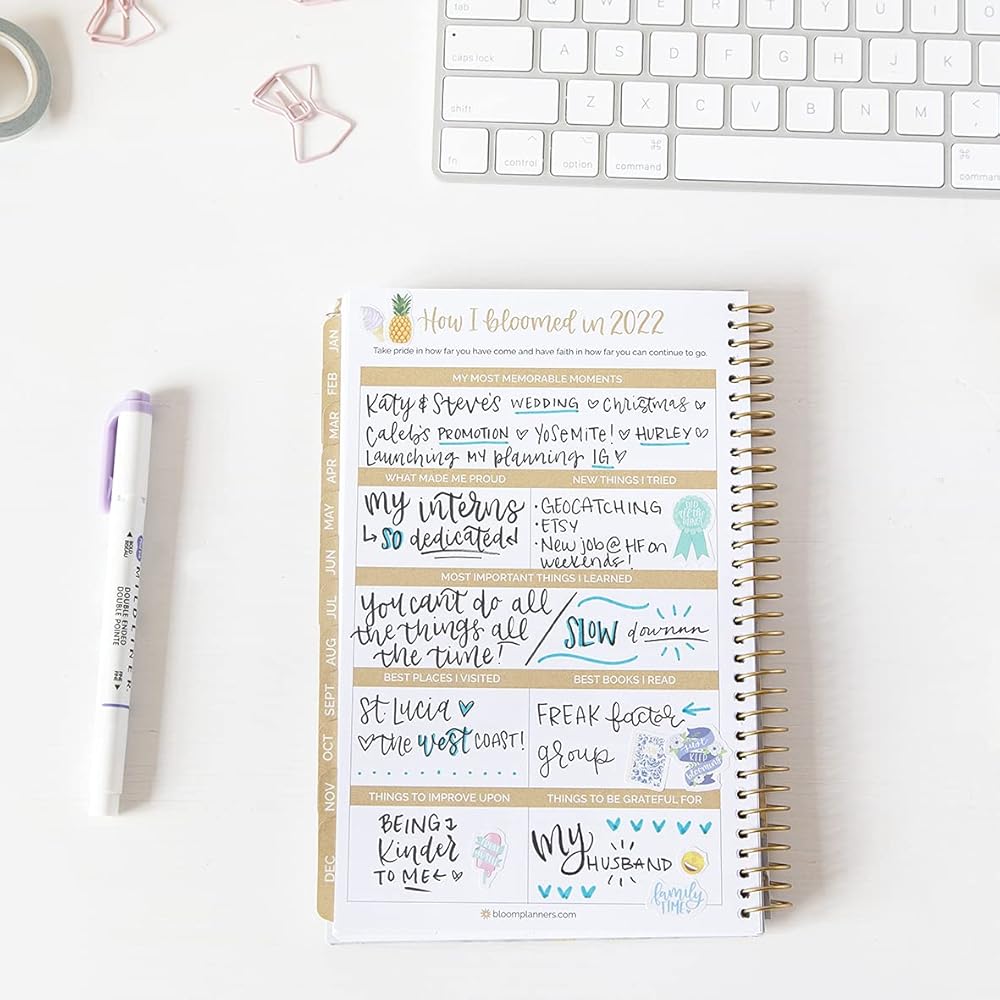 tab Q W E R T Y U I O
caps lock A S D F G H J K
shift Z X C V B N M <
fn control option command command
How I bloomed in 2022
Take pride in how far you have come and have faith in how far you can continue to go.
MY MOST MEMORABLE MOMENTS
Katy & Steve's WEDDING ♡ Christmas ♡
Caleb's PROMOTION ♡ YOSEMITE! ♡ HURLEY ♡
Launching MY planning IG ♡
WHAT MADE ME PROUD
My interns
↳ SO dedicated ↲
NEW THINGS I TRIED
· GEOCATCHING
· ETSY
· New job @ HF on
weekends!
MOST IMPORTANT THINGS I LEARNED
you can't do all
the things all
the time!
SLOW downnn
BEST PLACES I VISITED
St. Lucia ♥
♡ the west COAST!
BEST BOOKS I READ
FREAK factor ←
group
just
keep
blooming
THINGS TO IMPROVE UPON
BEING
Kinder
TO ME ← ♡
THINGS TO BE GRATEFUL FOR
My HUSBAND
family
TIME
bloomplanners.com
JAN
FEB
MAR
APR
MAY
JUN
JUL
AUG
SEPT
OCT
NOV
DEC
BOLD
MILDLINER
DOUBLE ENDED
DOUBLE POINTE
FINE